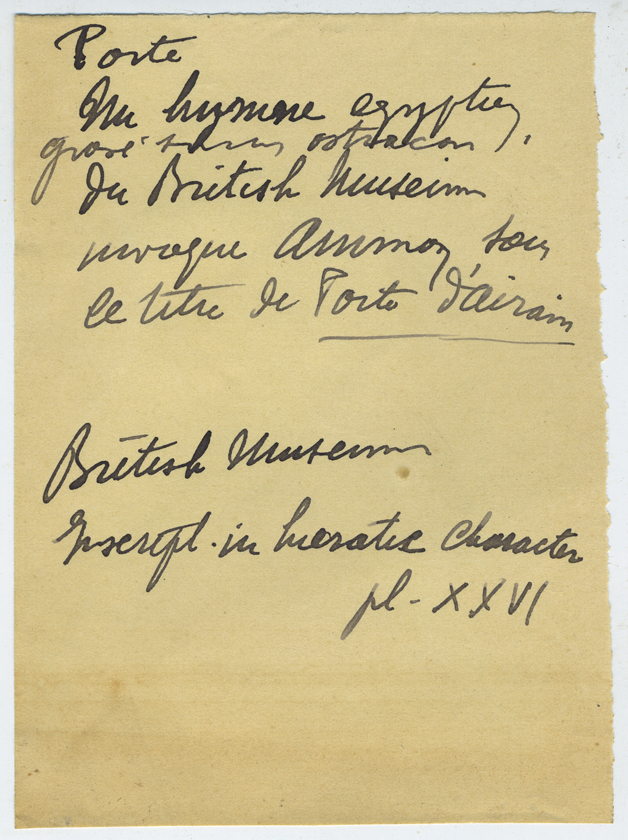 Porte
Un hymne egyptien
gravé sur un ostracon,
du British Museum
invoque Ammon sous
le titre de Porte d'airain
British Museum
Inscript. in hieratic character
pl. XXVI